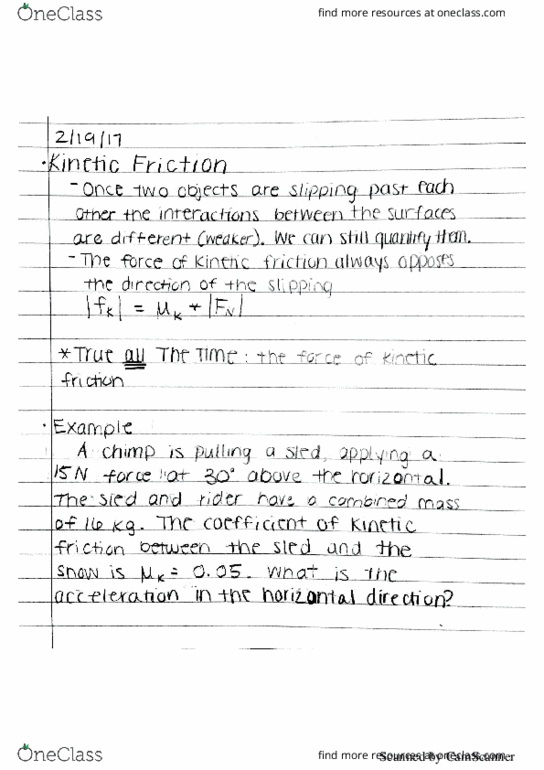 OneClass
find more resources at oneclass.com
2/19/17
·Kinetic Friction
- Once two objects are slipping past each
other the interactions between the surfaces
are different (weaker). We can still quantify them.
- The force of kinetic friction always opposes
the direction of the slipping
|fk| = μk * |FN|
*True all The Time: the force of kinetic
friction
· Example
A chimp is pulling a sled, applying a
15N force at 30° above the horizontal.
The sled and rider have a combined mass
of 16 kg. The coefficient of kinetic
friction between the sled and the
snow is μk = 0.05. What is the
acceleration in the horizontal direction?
OneClass
find more resources at oneclass.com
Scanned by CamScanner